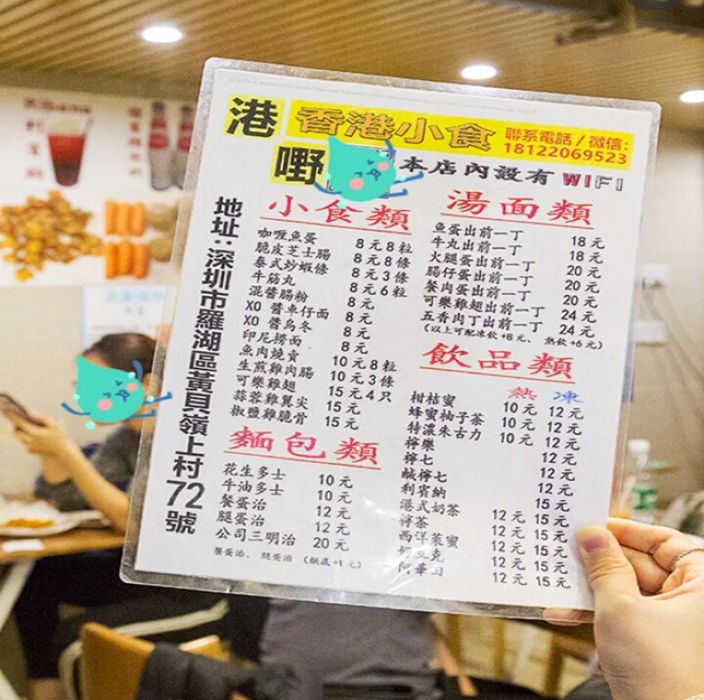 港
嘢
香港小食
聯系電話 / 微信:
18122069523
本店內設有 WIFI
地址:深圳市羅湖區黃貝嶺上村72號
小食類
咖喱魚蛋 8元8粒
脆皮芝士腸 8元8條
泰式炒蝦條 8元3條
牛筋丸 8元6粒
混醬腸粉 8元
XO 醬車仔面 8元
XO 醬烏冬 8元
印尼撈面 8元
魚肉燒賣 10元8粒
生煎雞肉腸 10元3條
可樂雞翅 15元4只
蒜蓉雞翼尖 15元
椒鹽雞脆骨 15元
麵包類
花生多士 10元
牛油多士 10元
餐蛋治 12元
腿蛋治 12元
公司三明治 20元
餐蛋治、腿蛋治 (烘底+1元)
湯面類
魚蛋出前一丁 18元
牛丸出前一丁 18元
火腿蛋出前一丁 20元
腸仔蛋出前一丁 20元
餐肉蛋出前一丁 20元
可樂雞翅出前一丁 24元
五香肉丁出前一丁 24元
(以上可配凍飲+8元、 熱飲+6元)
飲品類
熱 凍
柑桔蜜 10元 12元
蜂蜜柚子茶 10元 12元
特濃朱古力 10元 12元
檸樂 12元
檸七 12元
鹹檸七 12元
利賓納 15元
港式奶茶 12元 15元
檸茶 12元 15元
西洋菜蜜 12元 15元
好立克 12元 15元
阿華田 12元 15元